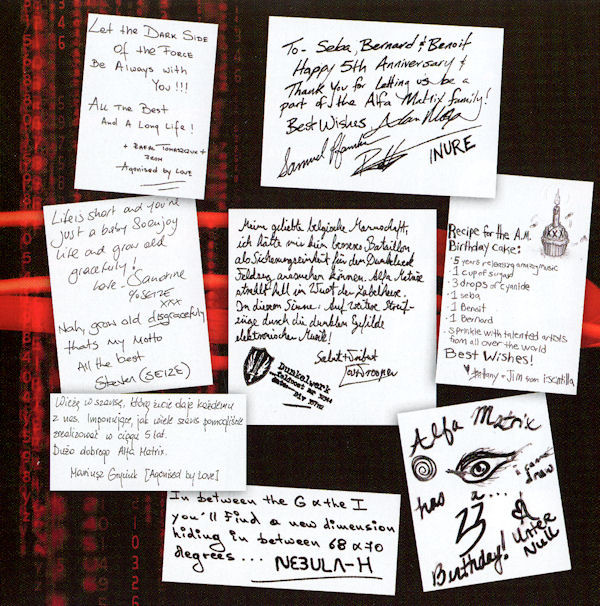 Let the Dark Side
Of the Force
Be Always with
You !!!
All The Best
And A Long Life !
+ Rafal Tomaszczuk +
Agonised by Love
To - Seba, Bernard & Benoit
Happy 5th Anniversary &
Thank You for Letting us be a
part of the Alfa Matrix family!
Best Wishes
INURE
Life is short and you're
just a baby so enjoy
life and grow old
gracefully!
Love - Sandrine
xxx
Nah, grow old disgracefully
thats my Motto
All the best
Steven (SEIZE)
Meine geliebte belgische Mannschaft,
ich hätte mir kein besseres Bataillon
als Sicherungseinheit für den Dunkelwerk
Feldzug aussuchen können. Alfa Matrix
strahlt hell im Wust der Labelheere.
In diesem Sinne: Auf weitere Streif-
züge durch die dunklen Gefilde
elektronischer Musik!
Dunkelwerk
Recipe for the A.M.
Birthday Cake:
· 5 years releasing amazing music
· 1 cup of sugar
· 3 drops of cyanide
· 1 seba
· 1 Benoit
· 1 Bernard
· sprinkle with talented artists
from all over the world
Best Wishes!
Jim from i:scintilla
Wierzę w szansę, którą życie daje każdemu
z nas. Imponujące, jak wiele szans pomogliście
zrealizować w ciągu 5 lat.
Dużo dobrego Alfa Matrix.
[Agonised by Love]
In between the G & the I
you'll find a new dimension
hiding in between 68 & 70
degrees... NEBULA-H
Alfa Matrix
has a...
Birthday!